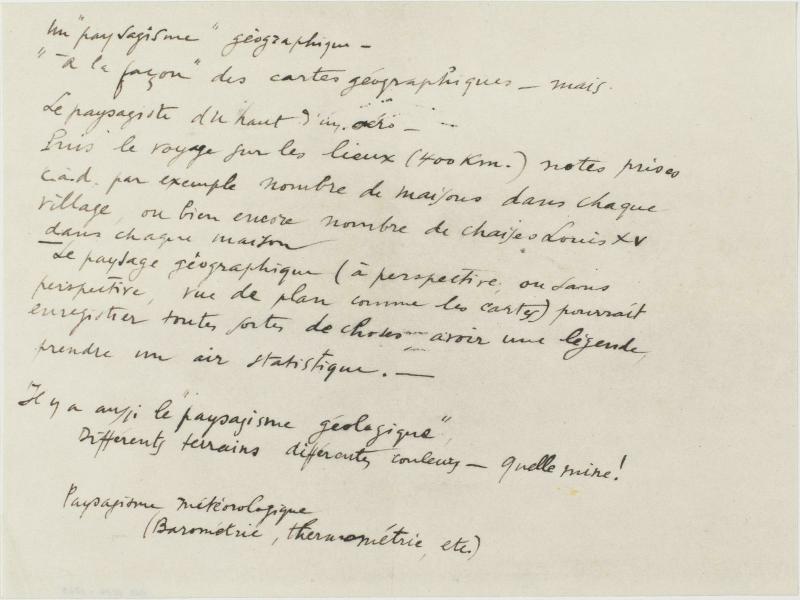 un "paysagisme" géographique —
"à la façon" des cartes géographiques — mais.
Le paysagiste du haut d'un aéro —
Puis le voyage sur les lieux (400 Km.) notes prises
c.à.d. par exemple nombre de maisons dans chaque
village, ou bien encore nombre de chaises Louis XV
dans chaque maison
— Le paysage géographique (à perspective, ou sans
perspective, vue de plan comme les cartes) pourrait
enregistrer toutes sortes de choses avoir une légende,
prendre un air statistique. —
Il y a aussi le "paysagisme géologique",
Différents terrains différentes couleurs — quelle mine!
Paysagisme météorologique
(Barométrie, thermométrie, etc.)